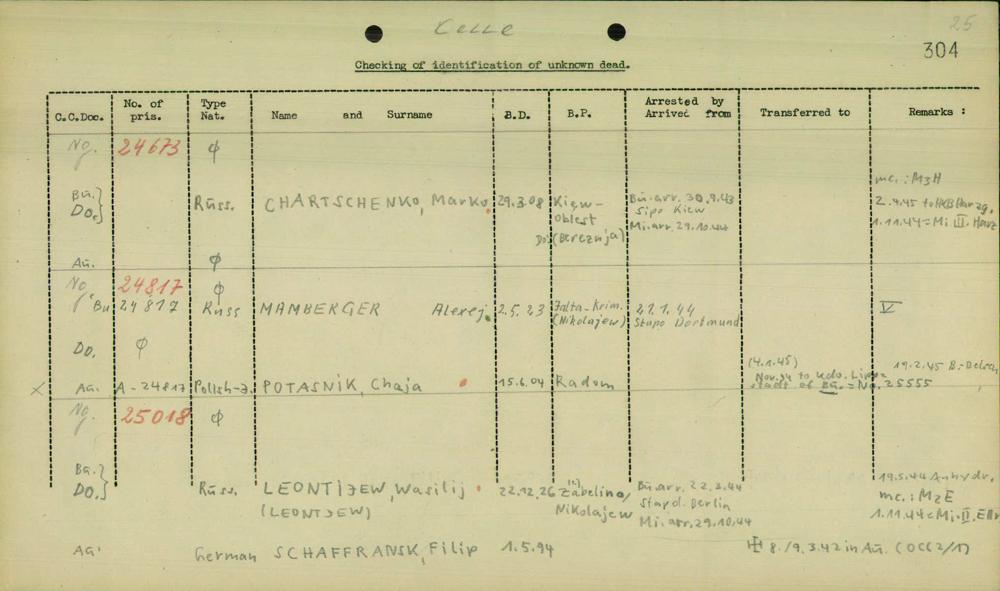 Celle
25
304
Checking of identification of unknown dead.
C.C.Doc. No. of pris. Type Nat. Name and Surname B.D. B.P. Arrested by Arrived from Transferred to Remarks :
Ng. 24673 φ
mc.: M3H
Bu.} Do.} Russ. CHARTSCHENKO, Marko 29.3.08 Kiew- Bu. arr. 30.9.43 2.4.45 to HKB Harzg.
oblest Sipo Kiew 1.11.44 = Mi III. Harz
Do: (Bereznja) Mi. arr. 29.10.44
Au. φ
Ng. 24817 φ
Bu 24817 Russ MAMBERGER Alexej 2.5.23 Jalta-Krim. 21.1.44 V
(Nikolajew) Stapo Dortmund
Do. φ
(4.1.45) 19.2.45 B.-Belsen
Nov. 44 to Kdo. Lipp-
X Au. A-24817 Polish-J. POTASNIK, Chaja 15.6.04 Radom stadt of Bu. = No. 25555
Ng. 25018 φ
Bu.} Do.} Russ. LEONTIJEW, Wasilij 22.12.26 Zabelina/ Bu. arr. 22.3.44 19.5.44 Anhydr.
(LEONTJEW) Nikolajew Stapol. Berlin mc.: M2E
Mi. arr. 29.10.44 1.11.44 = Mi. II. Ellr
Au. German SCHAFFRANSK, Filip 1.5.94 8./9.3.42 in Au. (OCC2/1)